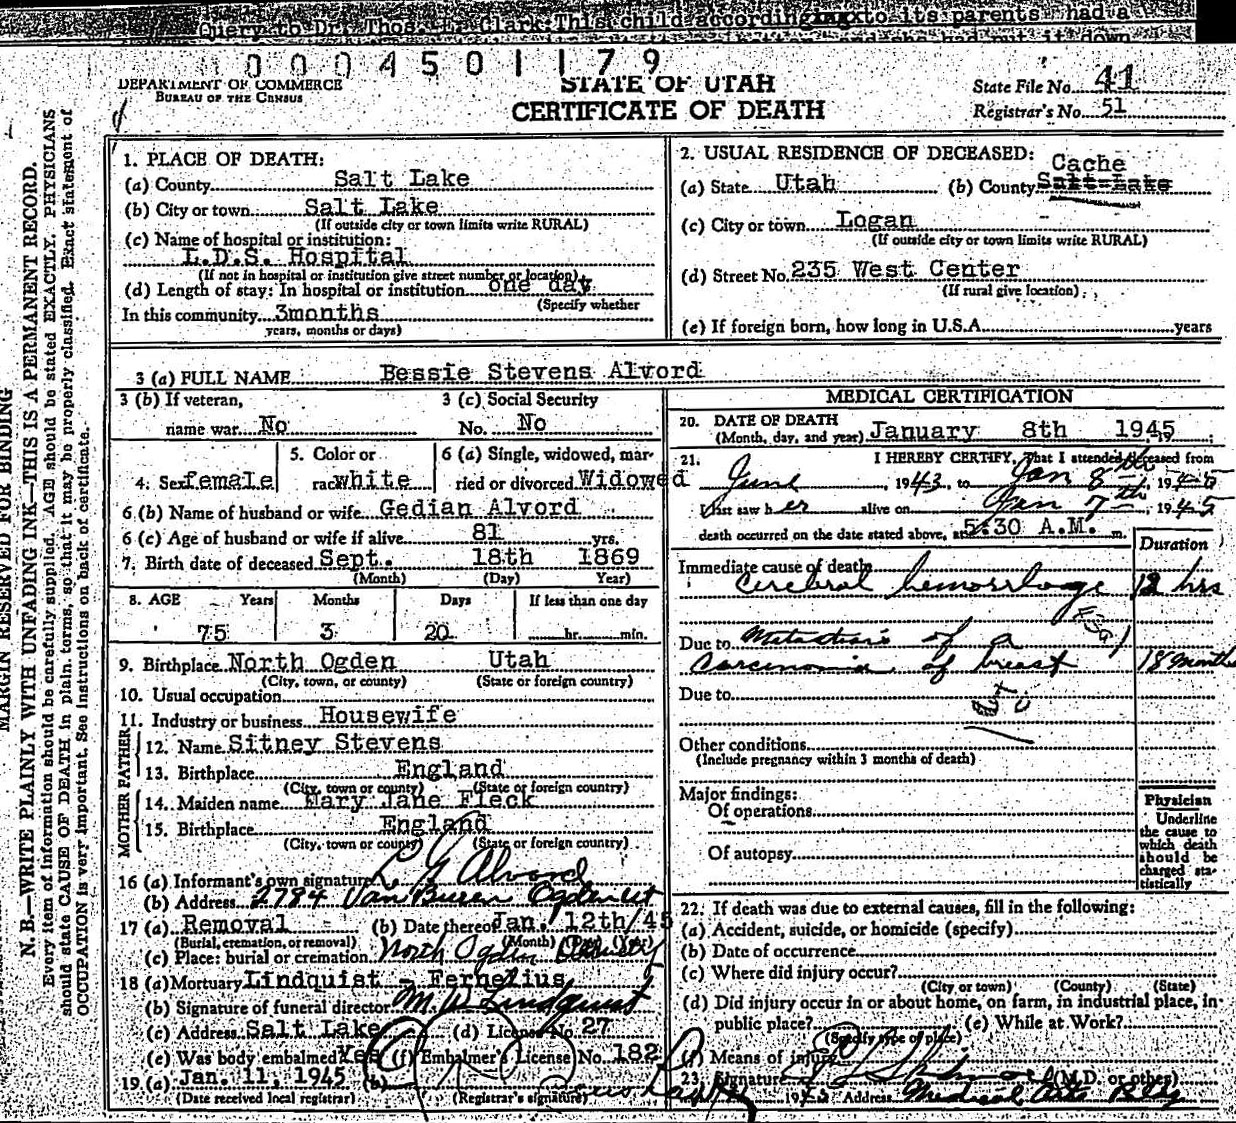 Query to Dr. Thos. L. Clark This child according to its parents had a
0004501179
DEPARTMENT OF COMMERCE
BUREAU OF THE CENSUS
STATE OF UTAH
CERTIFICATE OF DEATH
State File No. 41
Registrar's No. 51
MARGIN RESERVED FOR BINDING
N. B.—WRITE PLAINLY WITH UNFADING INK—THIS IS A PERMANENT RECORD.
Every item of information should be carefully supplied. AGE should be stated EXACTLY. PHYSICIANS
should state CAUSE OF DEATH in plain terms, so that it may be properly classified. Exact statement of
OCCUPATION is very important. See instructions on back of certificate.
1. PLACE OF DEATH:
(a) County Salt Lake
(b) City or town Salt Lake
(If outside city or town limits write RURAL)
(c) Name of hospital or institution:
L.D.S. Hospital
(If not in hospital or institution give street number or location)
(d) Length of stay: In hospital or institution one day
(Specify whether
In this community 3months
years, months or days)
2. USUAL RESIDENCE OF DECEASED:
Cache
(a) State Utah (b) County Salt Lake
(c) City or town Logan
(If outside city or town limits write RURAL)
(d) Street No. 235 West Center
(If rural give location)
(e) If foreign born, how long in U.S.A. years
3 (a) FULL NAME Bessie Stevens Alvord
3 (b) If veteran,
name war No
3 (c) Social Security
No. No
4. Sex female
5. Color or
race white
6 (a) Single, widowed, mar-
ried or divorced Widowed
6 (b) Name of husband or wife Gedian Alvord
6 (c) Age of husband or wife if alive 81 yrs.
7. Birth date of deceased Sept. 18th 1869
(Month) (Day) Year)
8. AGE Years Months Days If less than one day
75 3 20 hr. min.
9. Birthplace North Ogden Utah
(City, town, or county) (State or foreign country)
10. Usual occupation
11. Industry or business Housewife
FATHER
12. Name Sitney Stevens
13. Birthplace England
(City, town or county) (State or foreign country)
MOTHER
14. Maiden name Mary Jane Fleck
15. Birthplace England
(City, town or county) (State or foreign country)
16 (a) Informant's own signature L G Alvord
(b) Address 2784 Van Buren Ogden Ut
17 (a) Removal (b) Date thereof Jan. 12th/45
(Burial, cremation, or removal) (Month) (Day) (Year)
(c) Place: burial or cremation North Ogden Cemetery
18 (a) Mortuary Lindquist - Fernelius
(b) Signature of funeral director M. W. Lindquist
(c) Address Salt Lake (d) License No. 27
(e) Was body embalmed Yes (f) Embalmer's License No. 182
19 (a) Jan. 11, 1945 (b)
(Date received local registrar) (Registrar's signature)
MEDICAL CERTIFICATION
20. DATE OF DEATH
(Month, day, and year) January 8th 1945
21. I HEREBY CERTIFY, That I attended deceased from
June, 1943, to Jan 8th, 1945
I last saw her alive on Jan 7th, 1945
death occurred on the date stated above, at 5:30 A.M. m.
Duration
Immediate cause of death
Cerebral hemorrhage 12 hrs
Due to Metastasis of a
Carcinoma of breast 18 months
Due to
50
Other conditions
(Include pregnancy within 3 months of death)
Major findings:
Of operations
Of autopsy
Physician
Underline
the cause to
which death
should be
charged sta-
tistically
22. If death was due to external causes, fill in the following:
(a) Accident, suicide, or homicide (specify)
(b) Date of occurrence
(c) Where did injury occur?
(City or town) (County) (State)
(d) Did injury occur in or about home, on farm, in industrial place, in
public place? (e) While at Work?
(Specify type of place)
(f) Means of injury
23. Signature (M.D. or other)
1945 Address Medical Arts Bldg